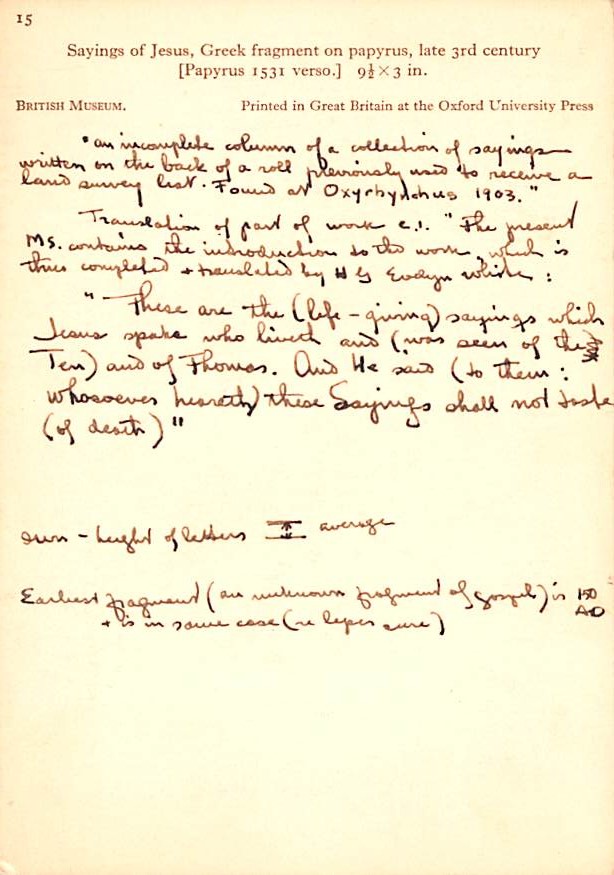 15
Sayings of Jesus, Greek fragment on papyrus, late 3rd century
[Papyrus 1531 verso.] 9½ × 3 in.
BRITISH MUSEUM. Printed in Great Britain at the Oxford University Press
"an incomplete column of a collection of sayings
written on the back of a roll previously used to receive a
land survey list. Found at Oxyrhynchus 1903."
Translation of part of work e.1. "The present
Ms. contains the introduction to the work, which is
thus completed + translated by H G Evelyn White :
"These are the (life-giving) sayings which
Jesus spake who liveth and (was seen of the
Ten) and of Thomas. And He said (to them :
whosoever heareth) these Sayings shall not taste
(of death)"
- height of letters average
Earliest fragment (an unknown fragment of gospel) is 150
AD
+ is in same case (re leper cure)